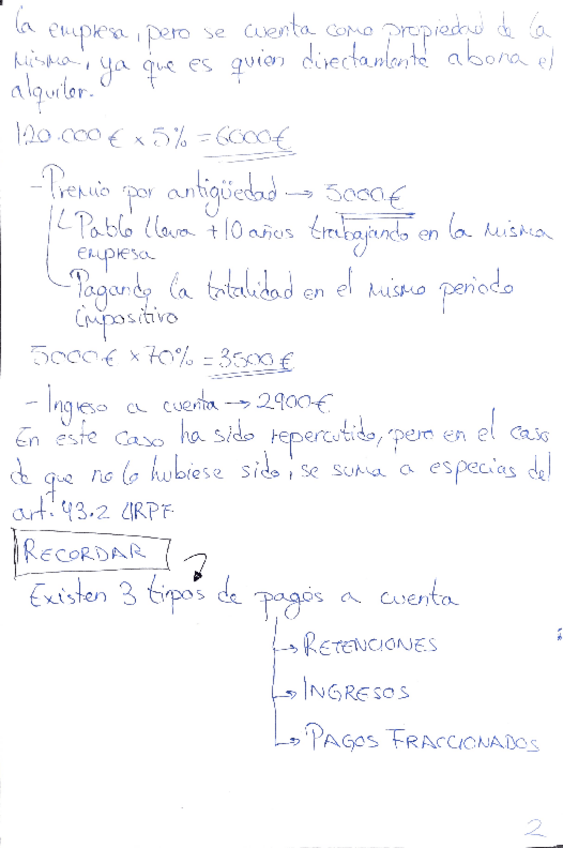 la empresa, pero se cuenta como propiedad de la
misma, ya que es quien directamente abona el
alquiler.
120.000€ x 5% = 6000€
- Premio por antigüedad → 5000€
Pablo lleva +10 años trabajando en la misma
empresa
Pagando la totalidad en el mismo periodo
impositivo
5000€ x 70% = 3500€
- Ingreso a cuenta → 2900€
En este caso ha sido repercutido, pero en el caso
de que no lo hubiese sido, se suma a especias del
art. 43.2 LIRPF
RECORDAR
Existen 3 tipos de pagos a cuenta
→ RETENCIONES
→ INGRESOS
→ PAGOS FRACCIONADOS
2